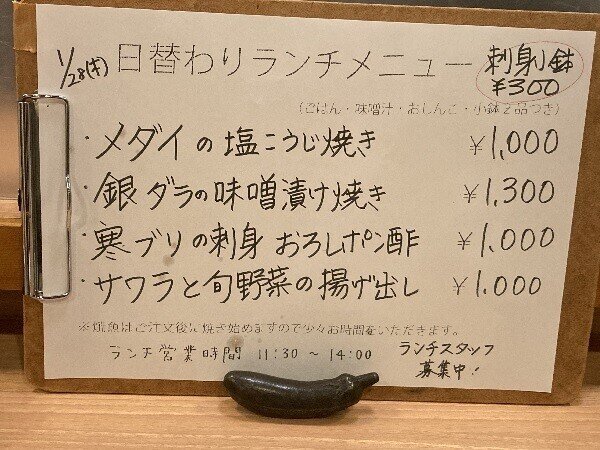 1/28(木) 日替わりランチメニュー
刺身小鉢
¥300
(ごはん・味噌汁・おしんこ・小鉢2品つき)
・メダイの塩こうじ焼き ¥1,000
・銀ダラの味噌漬け焼き ¥1,300
・寒ブリの刺身 おろしポン酢 ¥1,000
・サワラと旬野菜の揚げ出し ¥1,000
※焼魚はご注文後に焼き始めますので少々お時間をいただきます。
ランチ営業時間 11:30 ～ 14:00
ランチスタッフ
募集中!